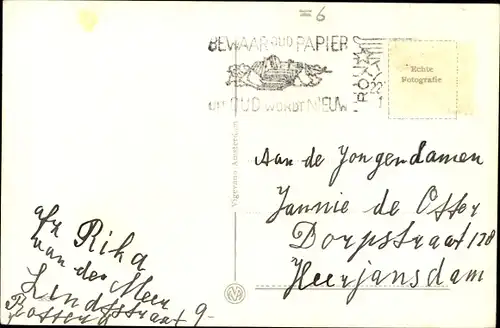 = 6
BEWAAR OUD PAPIER
UIT OUD WORDT NIEUW
Echte
Fotografie
Vigevano Amsterdam
Aan de Jongendamen
Jannie de Otter
Dorpstraat 178
Heerjansdam
afz Rika
van der Meer
Lindtstraat 9-